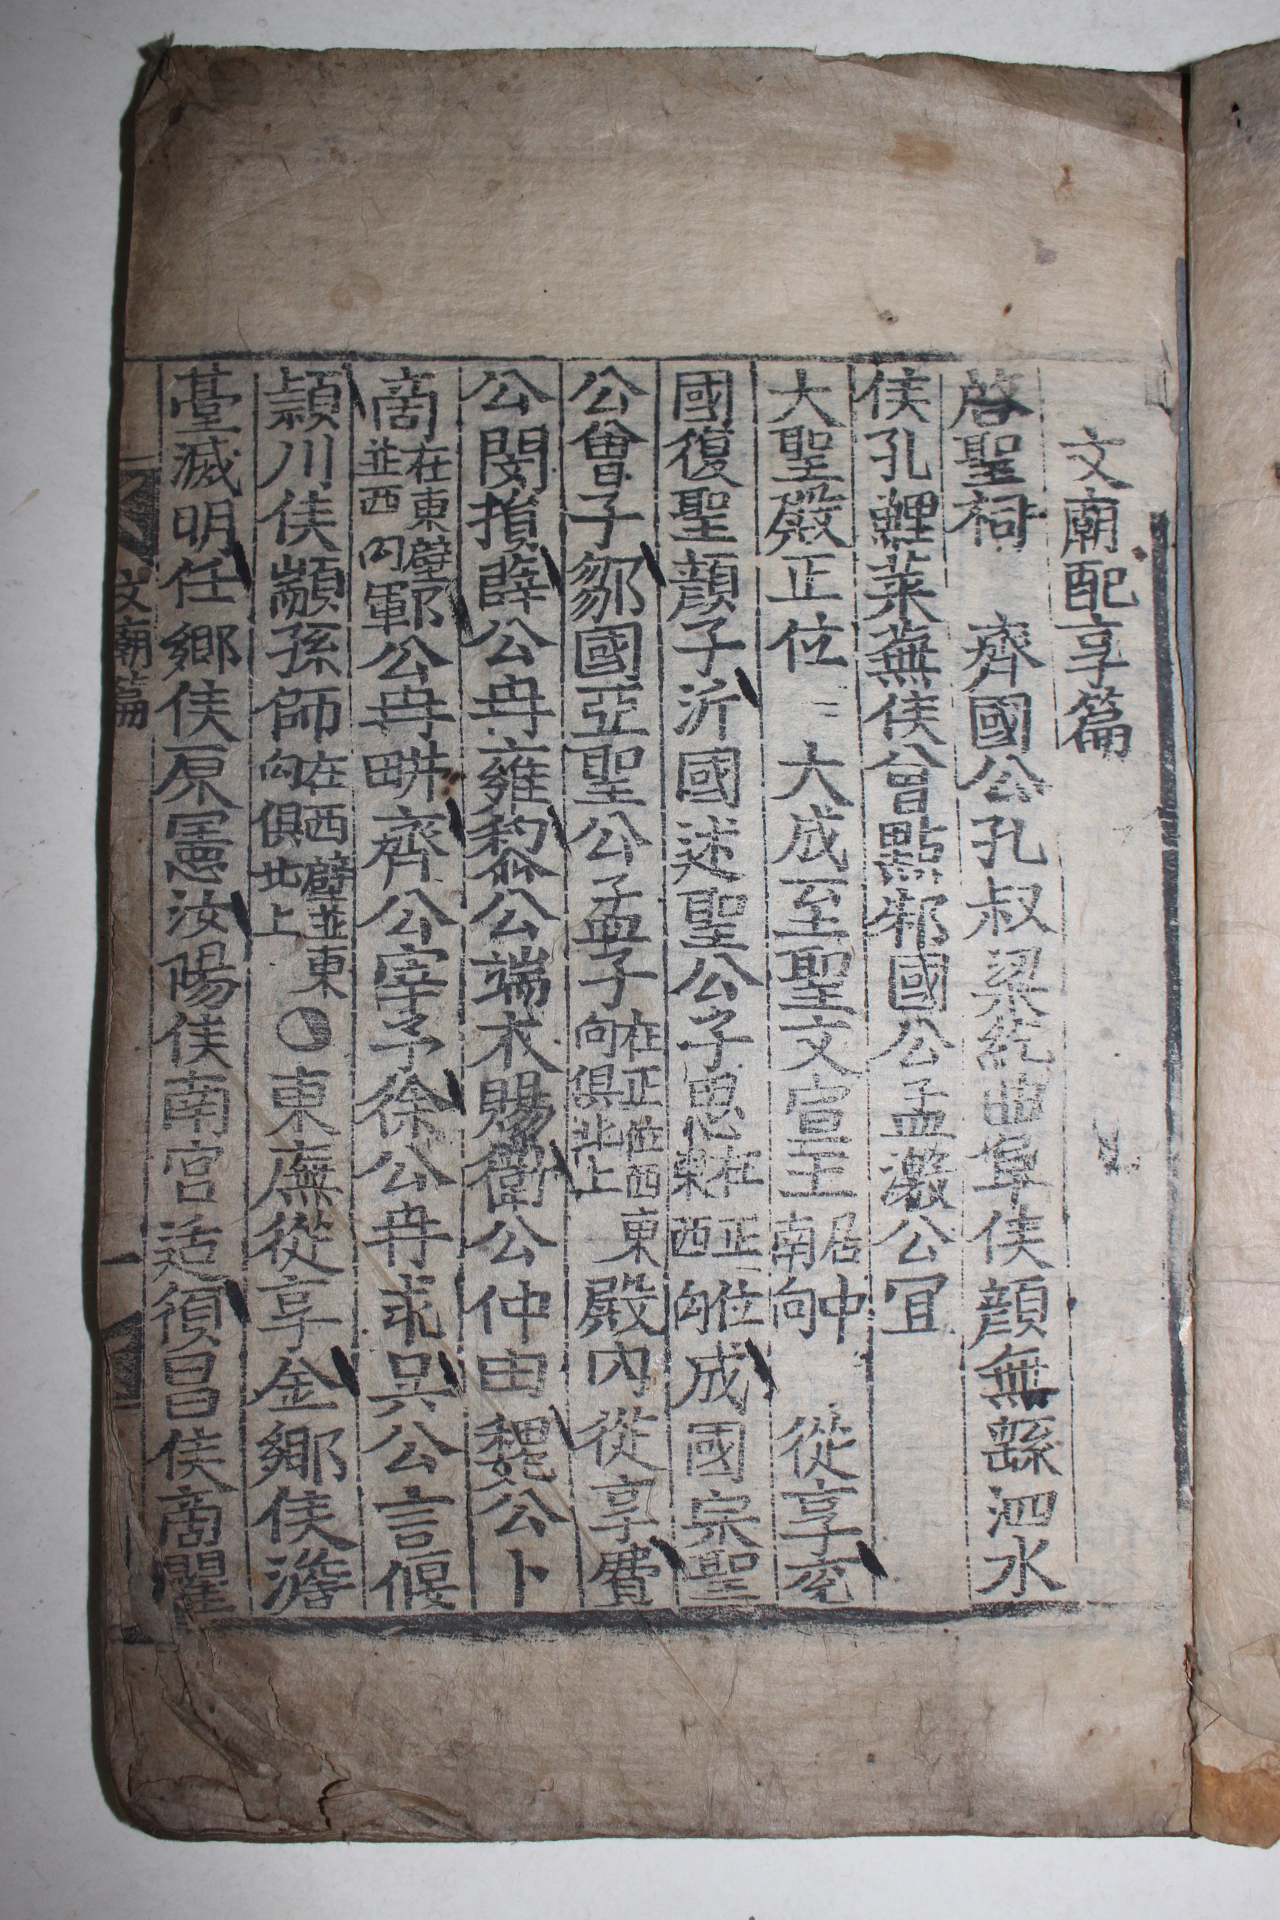 文廟配享篇
啓聖祠 齊國公孔叔梁紇曲阜侯顔無繇泗水
侯孔鯉萊蕪侯曾點邾國公孟激公冝
大聖殿正位 大成至聖文宣王居中南向 從享兖
國復聖顔子沂國述聖公子思在正位東西向成國宗聖
公曾子鄒國亞聖公孟子在正位西東向俱北上殿內從享費
公閔損薛公冉雍黎公端木賜衛公仲由魏公卜
商在東壁並西向鄆公冉畊齊公宰予徐公冉求吳公言偃
潁川侯顓孫師在西壁並東向俱北上○東廡從享金鄉侯澹
臺滅明任鄉侯原憲汝陽侯南宮适須昌侯商瞿
文廟篇 一